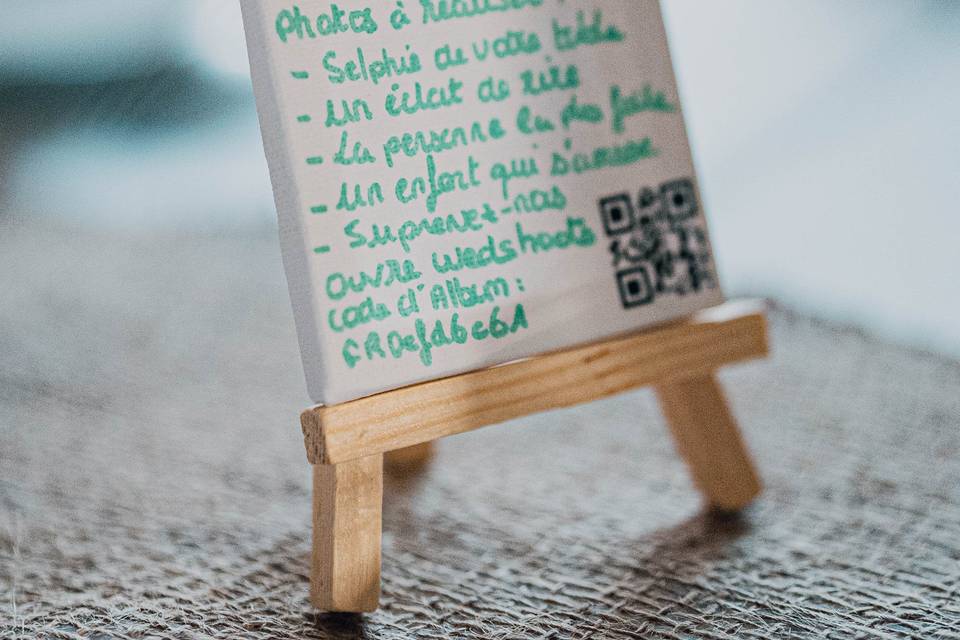 Photos à réaliser :
- Selphie de votre table
- Un éclat de rire
- La personne la plus folle
- Un enfant qui s'amuse
- Suprenez-nous
Ouvre wedshoots
Code d'Album :
FRDefd6c61